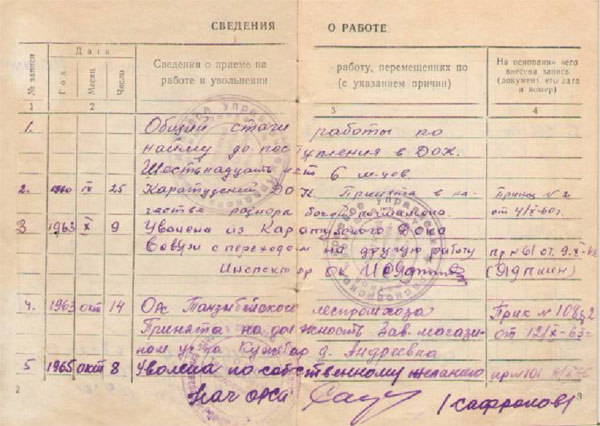 СВЕДЕНИЯ О РАБОТЕ
№ записи
Дата
Год
Месяц
Число
Сведения о приеме на работу, перемещениях по
работе и увольнении (с указанием причин)
На основании чего
внесена запись
(документ, его дата
и номер)
1 2 3 4
1. Общий стаж работы по
найму до поступления в Док.
Шестнадцать лет 6 м-цев
2. 1960 IX 25 Каратузский Док. Принята в ка- Приказ № 2
честве
3 1963 X 9 Уволена из Каратузского Дока
в связи с переходом на другую работу пр № 61 от 9.X-63
Инспектор ОК
4. 1963 окт 14 Орс Танзыбейского леспромхоза Прик № 108 §2
Принята на должность Зав. магази- от 12/X-63г
ном уч-ка Кужебар д. Андреевка
5 1965 окт 8 Уволена по собственному желанию пр №101
Нач орса (Сафронов)
2 3